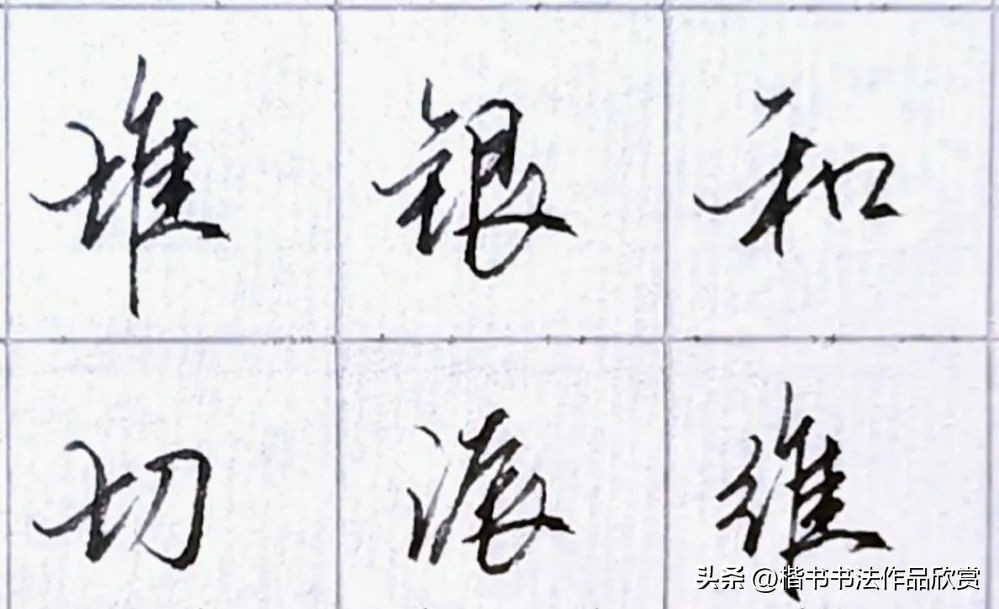 堆银和
切派维
头条 @楷书书法作品欣赏